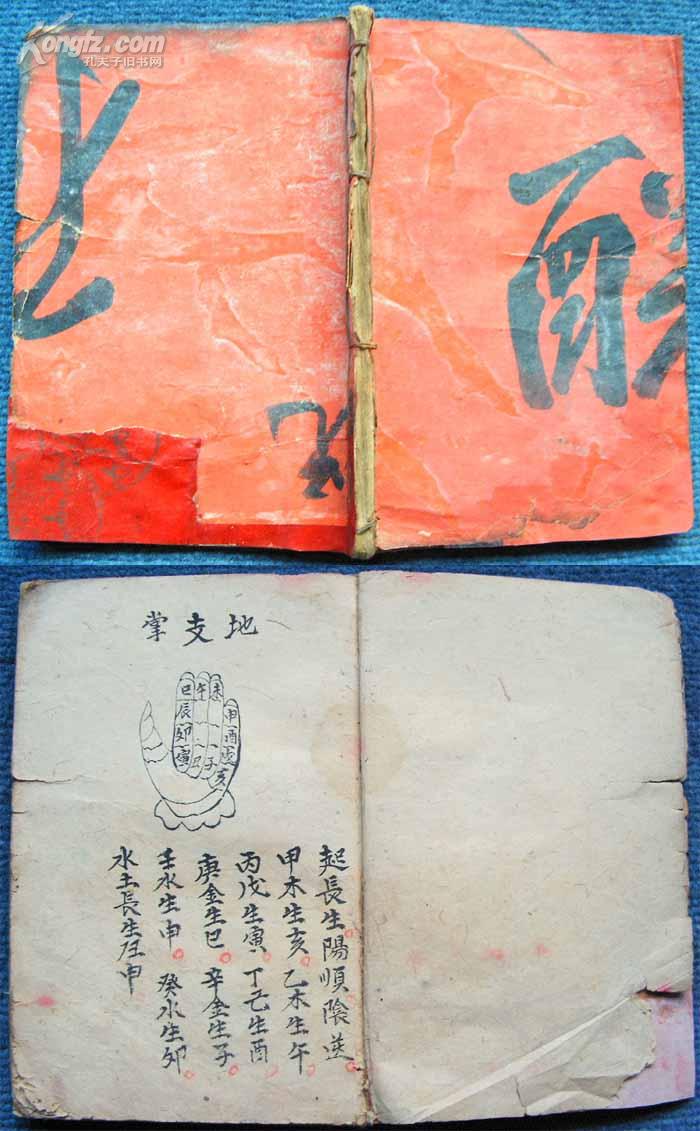 Kongfz.com
孔夫子旧书网
地支掌
巳 午 未 申
辰 酉
卯 戌
寅 丑 子 亥
起長生陽順陰逆
甲木生亥 乙木生午
丙戊生寅 丁己生酉
庚金生巳 辛金生子
壬水生申 癸水生卯
水土長生在申